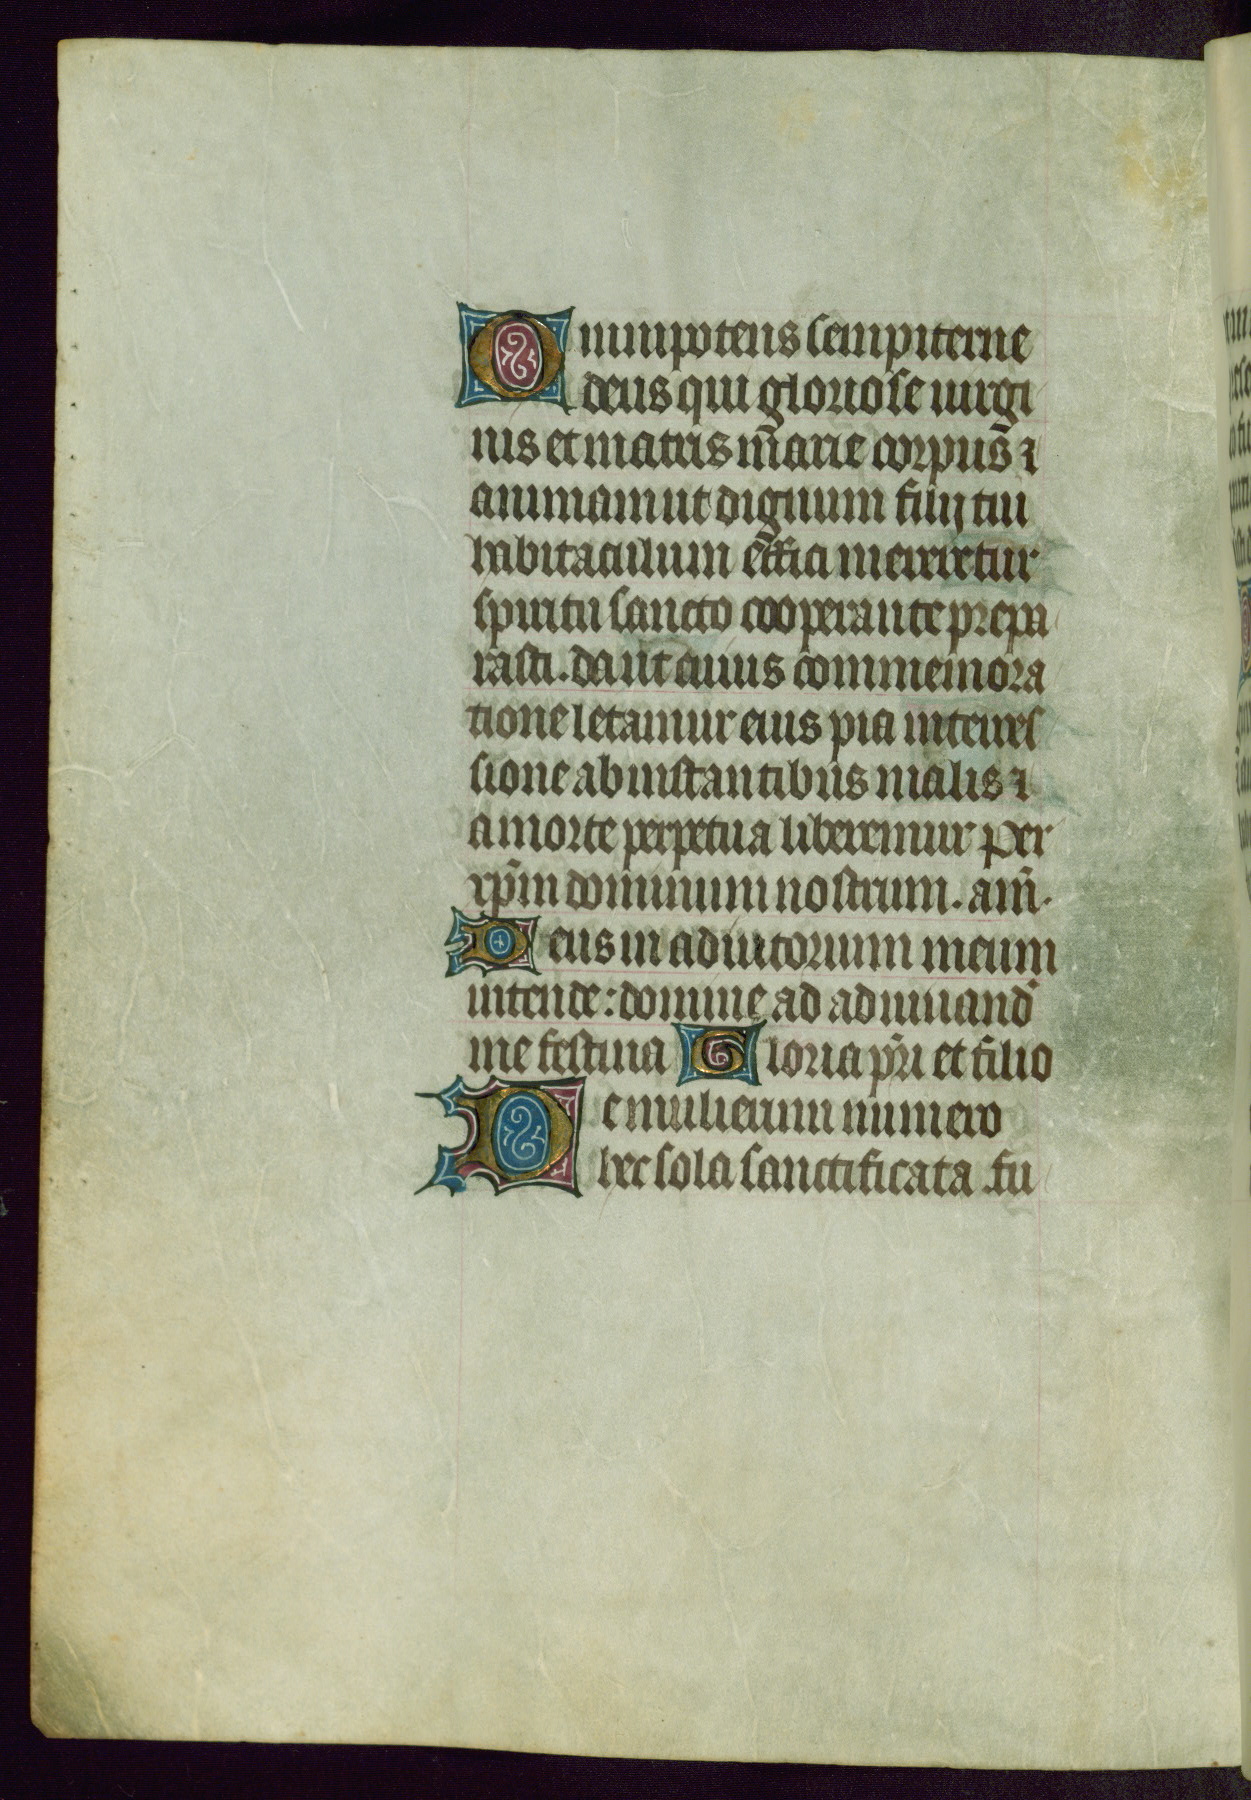 Omnipotens sempiterne
deus qui gloriose uirgi
nis et matris m̄arie corpus ⁊
animam ut dignum filij tui
habitaculum effici mereretur
spiritu sancto cooperante prepa
rasti. da ut cuius commemora
tione letamur eius pia interces
sione ab instantibus malis ⁊
a morte perpetua liberemur Per
xp̄m dominum nostrum. am̄.
Deus in adiutorium meum
intende: domine ad adiuuand̄
me festina Gloria p̄ri et filio
De mulierum numero
hec sola sanctificata fu